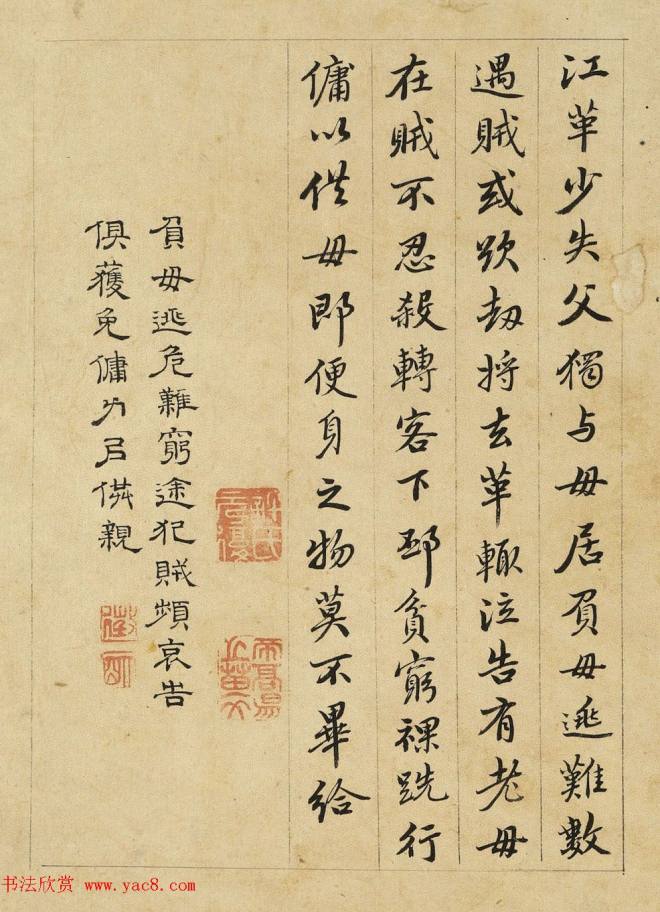 江革少失父獨与母居負母逃難數
遇賊或欲劫將去革輒泣告有老母
在賊不忍殺轉客下邳貧窮裸跣行
傭以供母即便身之物莫不畢給
負母逃危難窮途犯賊頻哀告
俱獲免傭力㠯供親
徵明
书法欣赏 www.yac8.com